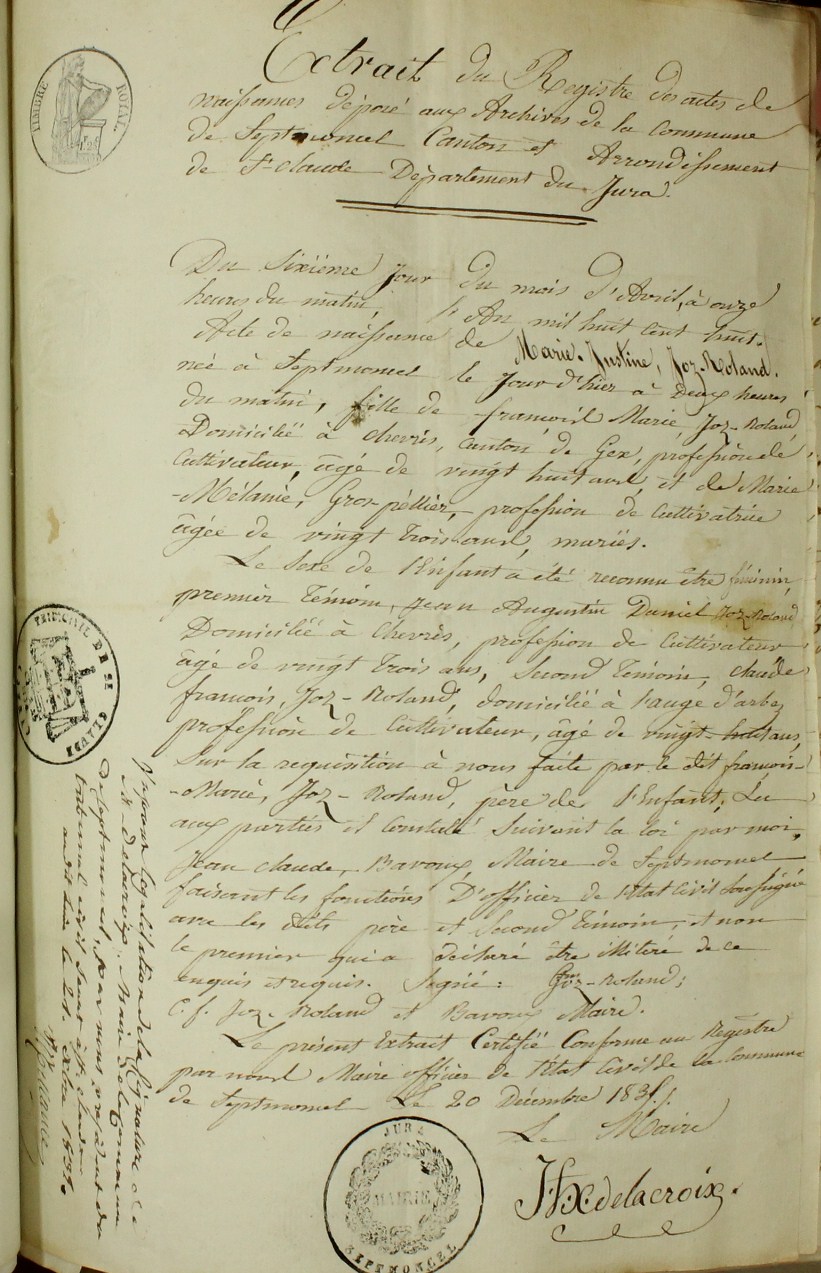 TIMBRE ROYAL
Extrait du Registre des actes de
naissances déposé aux Archives de la Commune
de Septmoncel Canton et Arrondissement
de St. Claude Département du Jura.
Du Sixième Jour du mois d'Avril, à onze
heures du matin, l'An mil huit cent huit.
Acte de naissance de Marie-Justine, Joz-Roland.
née à Septmoncel le Jour d'hier à Deux heures
du matin, fille de françois Marie Joz-Roland
Domicilié à Chevris, Canton de Gex, profession de
Cultivateur, âgé de vingt huit ans, et de Marie
-Mélanie, Gros-pellier, profession de Cultivatrice
âgée de vingt trois ans, mariés.
Le Sexe de l'Enfant a été reconnu être féminin,
premier témoin, Jean Augustin Daniel Joz-Roland
Domicilié à Chevris, profession de Cultivateur
âgé de vingt trois ans, Second témoin, claude
françois, Joz-Roland, domicilié à l'auge d'arbe,
profession de Cultivateur, âgé de vingt-huit ans,
Sur la requisition à nous faite par le dit françois-
-Marie, Joz-Roland, père de l'Enfant, Lu
aux parties et Constaté Suivant la loi par moi,
Jean claude, Bavoux, Maire de Septmoncel
faisant les fonctions D'officier de l'état Civil Soussigné
avec les dits père et Second témoin, et non
le premier qui a déclaré être illitéré de ce
enquis et requis. Signé: Joz-Roland;
C. f. Joz-Roland et Bavoux Maire.
Le présent Extrait Certifié Conforme au Registre
par nous Maire officier de l'état Civil de la Commune
de Septmoncel Le 20 Décembre 1838./.
Le Maire
J. Fx. delacroix.
JURA
MAIRIE
SEPTMONCEL
TRIBUNAL DE ST CLAUDE
Vu pour légalisation de la Signature de
M. delacroix, Maire de la Commune
de Septmoncel, par nous président du
tribunal civil séant à St. claude